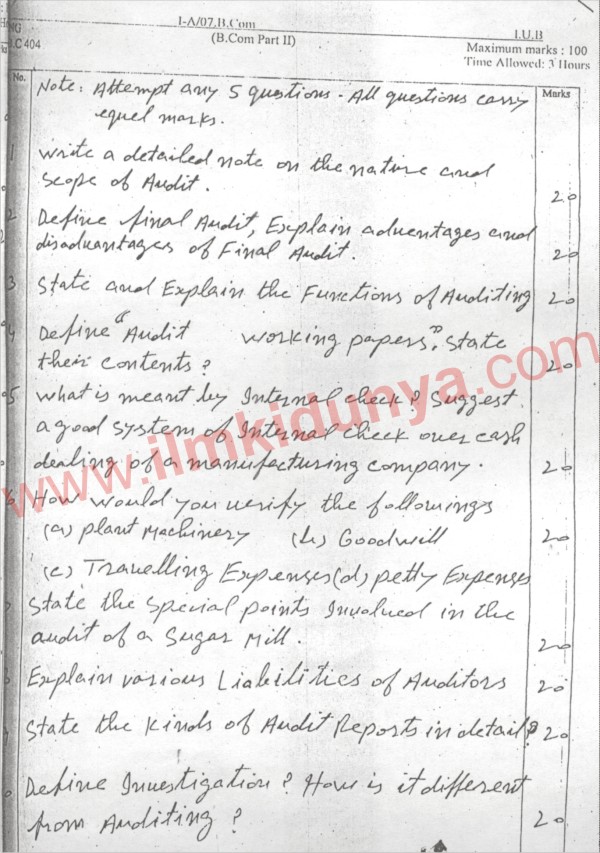 I-A/07.B.Com
I.U.B
.C 404
(B.Com Part II)
Maximum marks : 100
Time Allowed: 3 Hours
No.
Marks
Note: Attempt any 5 questions. All questions carry
equal marks.
1 Write a detailed note on the nature and
Scope of Audit. 20
2 Define final Audit, Explain advantages and
disadvantages of Final Audit. 20
3 State and Explain the Functions of Auditing 20
4 Define "Audit working papers". State
their contents? 20
5 What is meant by Internal check? Suggest
a good system of Internal check over cash
dealing of a manufacturing company. 20
How would you verify the followings
(a) plant Machinery (b) Goodwill 20
(c) Travelling Expenses (d) petty Expenses
State the Special points Involved in the
audit of a Sugar Mill. 20
Explain various Liabilities of Auditors 20
State the kinds of Audit Reports in detail? 20
Define Investigation? How is it different
from Auditing? 20
www.ilmkidunya.com